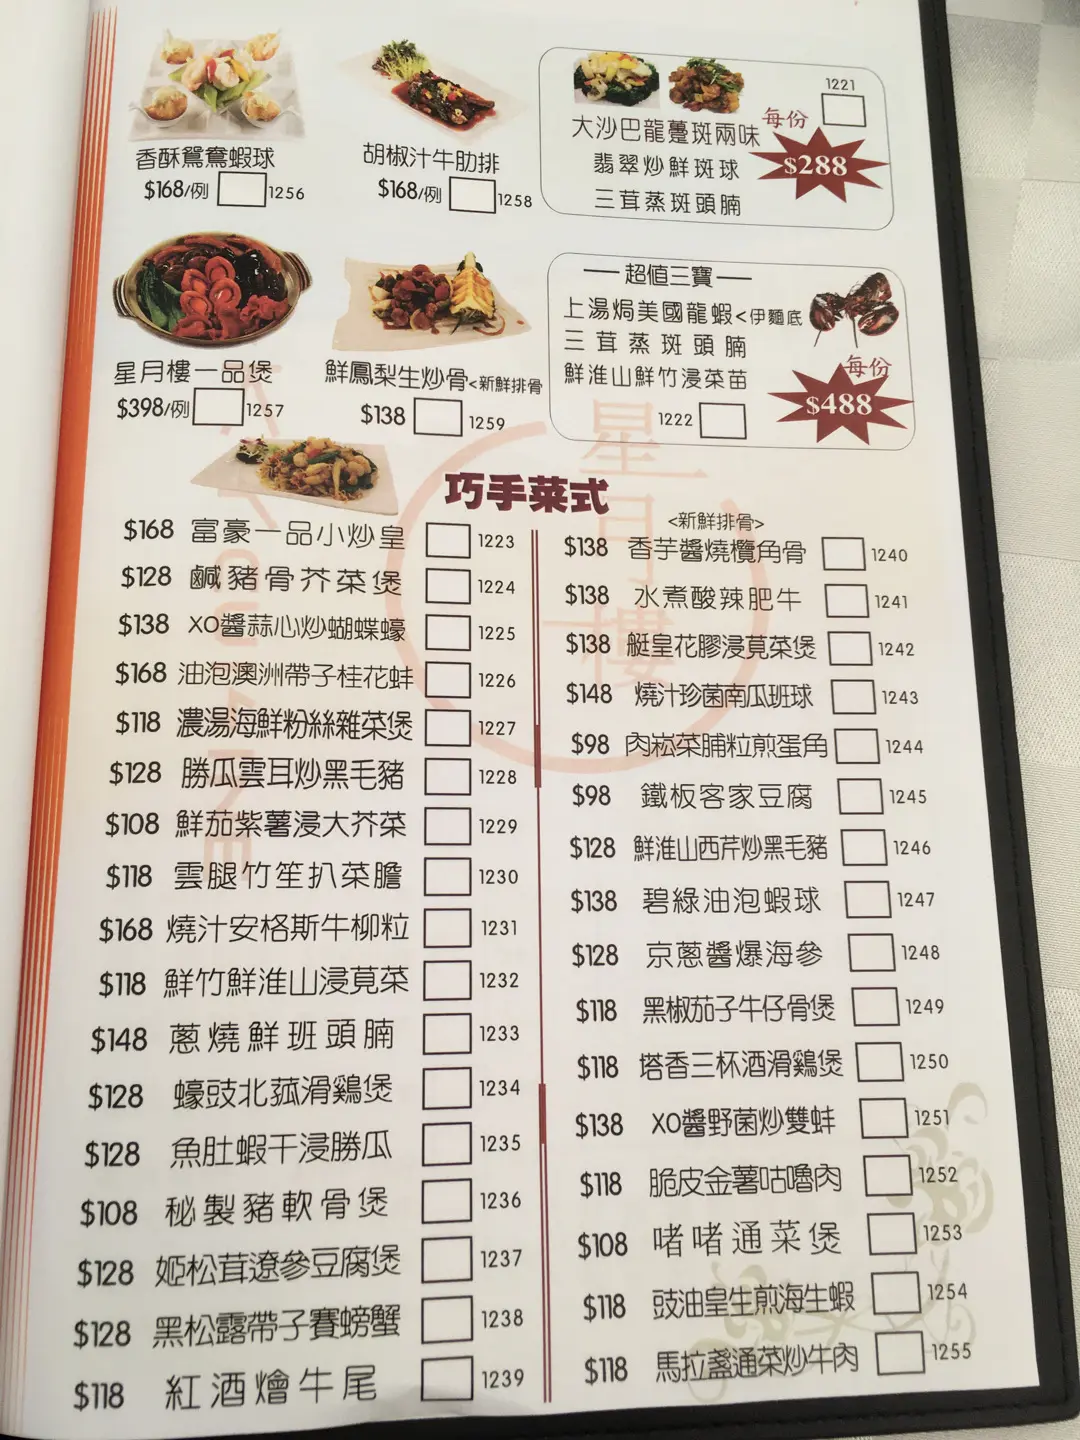 香酥鴛鴦蝦球
$168/例 1256
胡椒汁牛肋排
$168/例 1258
1221
大沙巴龍躉斑兩味
每份
$288
翡翠炒鮮斑球
三茸蒸斑頭腩
星月樓一品煲
$398/例 1257
鮮鳳梨生炒骨<新鮮排骨
$138 1259
超值三寶
上湯焗美國龍蝦<伊麵底
三茸蒸斑頭腩
鮮淮山鮮竹浸菜苗
每份
$488
1222
星月樓
巧手菜式
$168 富豪一品小炒皇 1223
$128 鹹豬骨芥菜煲 1224
$138 XO醬蒜心炒蝴蝶蠔 1225
$168 油泡澳洲帶子桂花蚌 1226
$118 濃湯海鮮粉絲雜菜煲 1227
$128 勝瓜雲耳炒黑毛豬 1228
$108 鮮茄紫薯浸大芥菜 1229
$118 雲腿竹笙扒菜膽 1230
$168 燒汁安格斯牛柳粒 1231
$118 鮮竹鮮淮山浸莧菜 1232
$148 蔥燒鮮班頭腩 1233
$128 蠔豉北菰滑鷄煲 1234
$128 魚肚蝦干浸勝瓜 1235
$108 秘製豬軟骨煲 1236
$128 姬松茸遼參豆腐煲 1237
$128 黑松露帶子賽螃蟹 1238
$118 紅酒燴牛尾 1239
<新鮮排骨>
$138 香芋醬燒欖角骨 1240
$138 水煮酸辣肥牛 1241
$138 艇皇花膠浸莧菜煲 1242
$148 燒汁珍菌南瓜班球 1243
$98 肉崧菜脯粒煎蛋角 1244
$98 鐵板客家豆腐 1245
$128 鮮淮山西芹炒黑毛豬 1246
$138 碧綠油泡蝦球 1247
$128 京蔥醬爆海參 1248
$118 黑椒茄子牛仔骨煲 1249
$118 塔香三杯酒滑鷄煲 1250
$138 XO醬野菌炒雙蚌 1251
$118 脆皮金薯咕嚕肉 1252
$108 啫啫通菜煲 1253
$118 豉油皇生煎海生蝦 1254
$118 馬拉盞通菜炒牛肉 1255